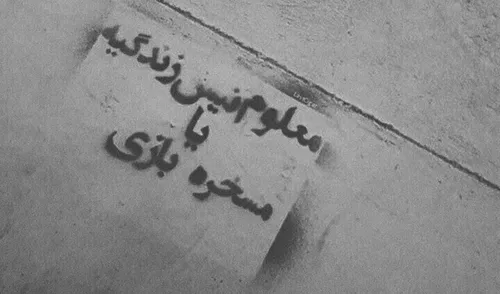 معلوم نیس زندگیه
یا
مسخره بازی